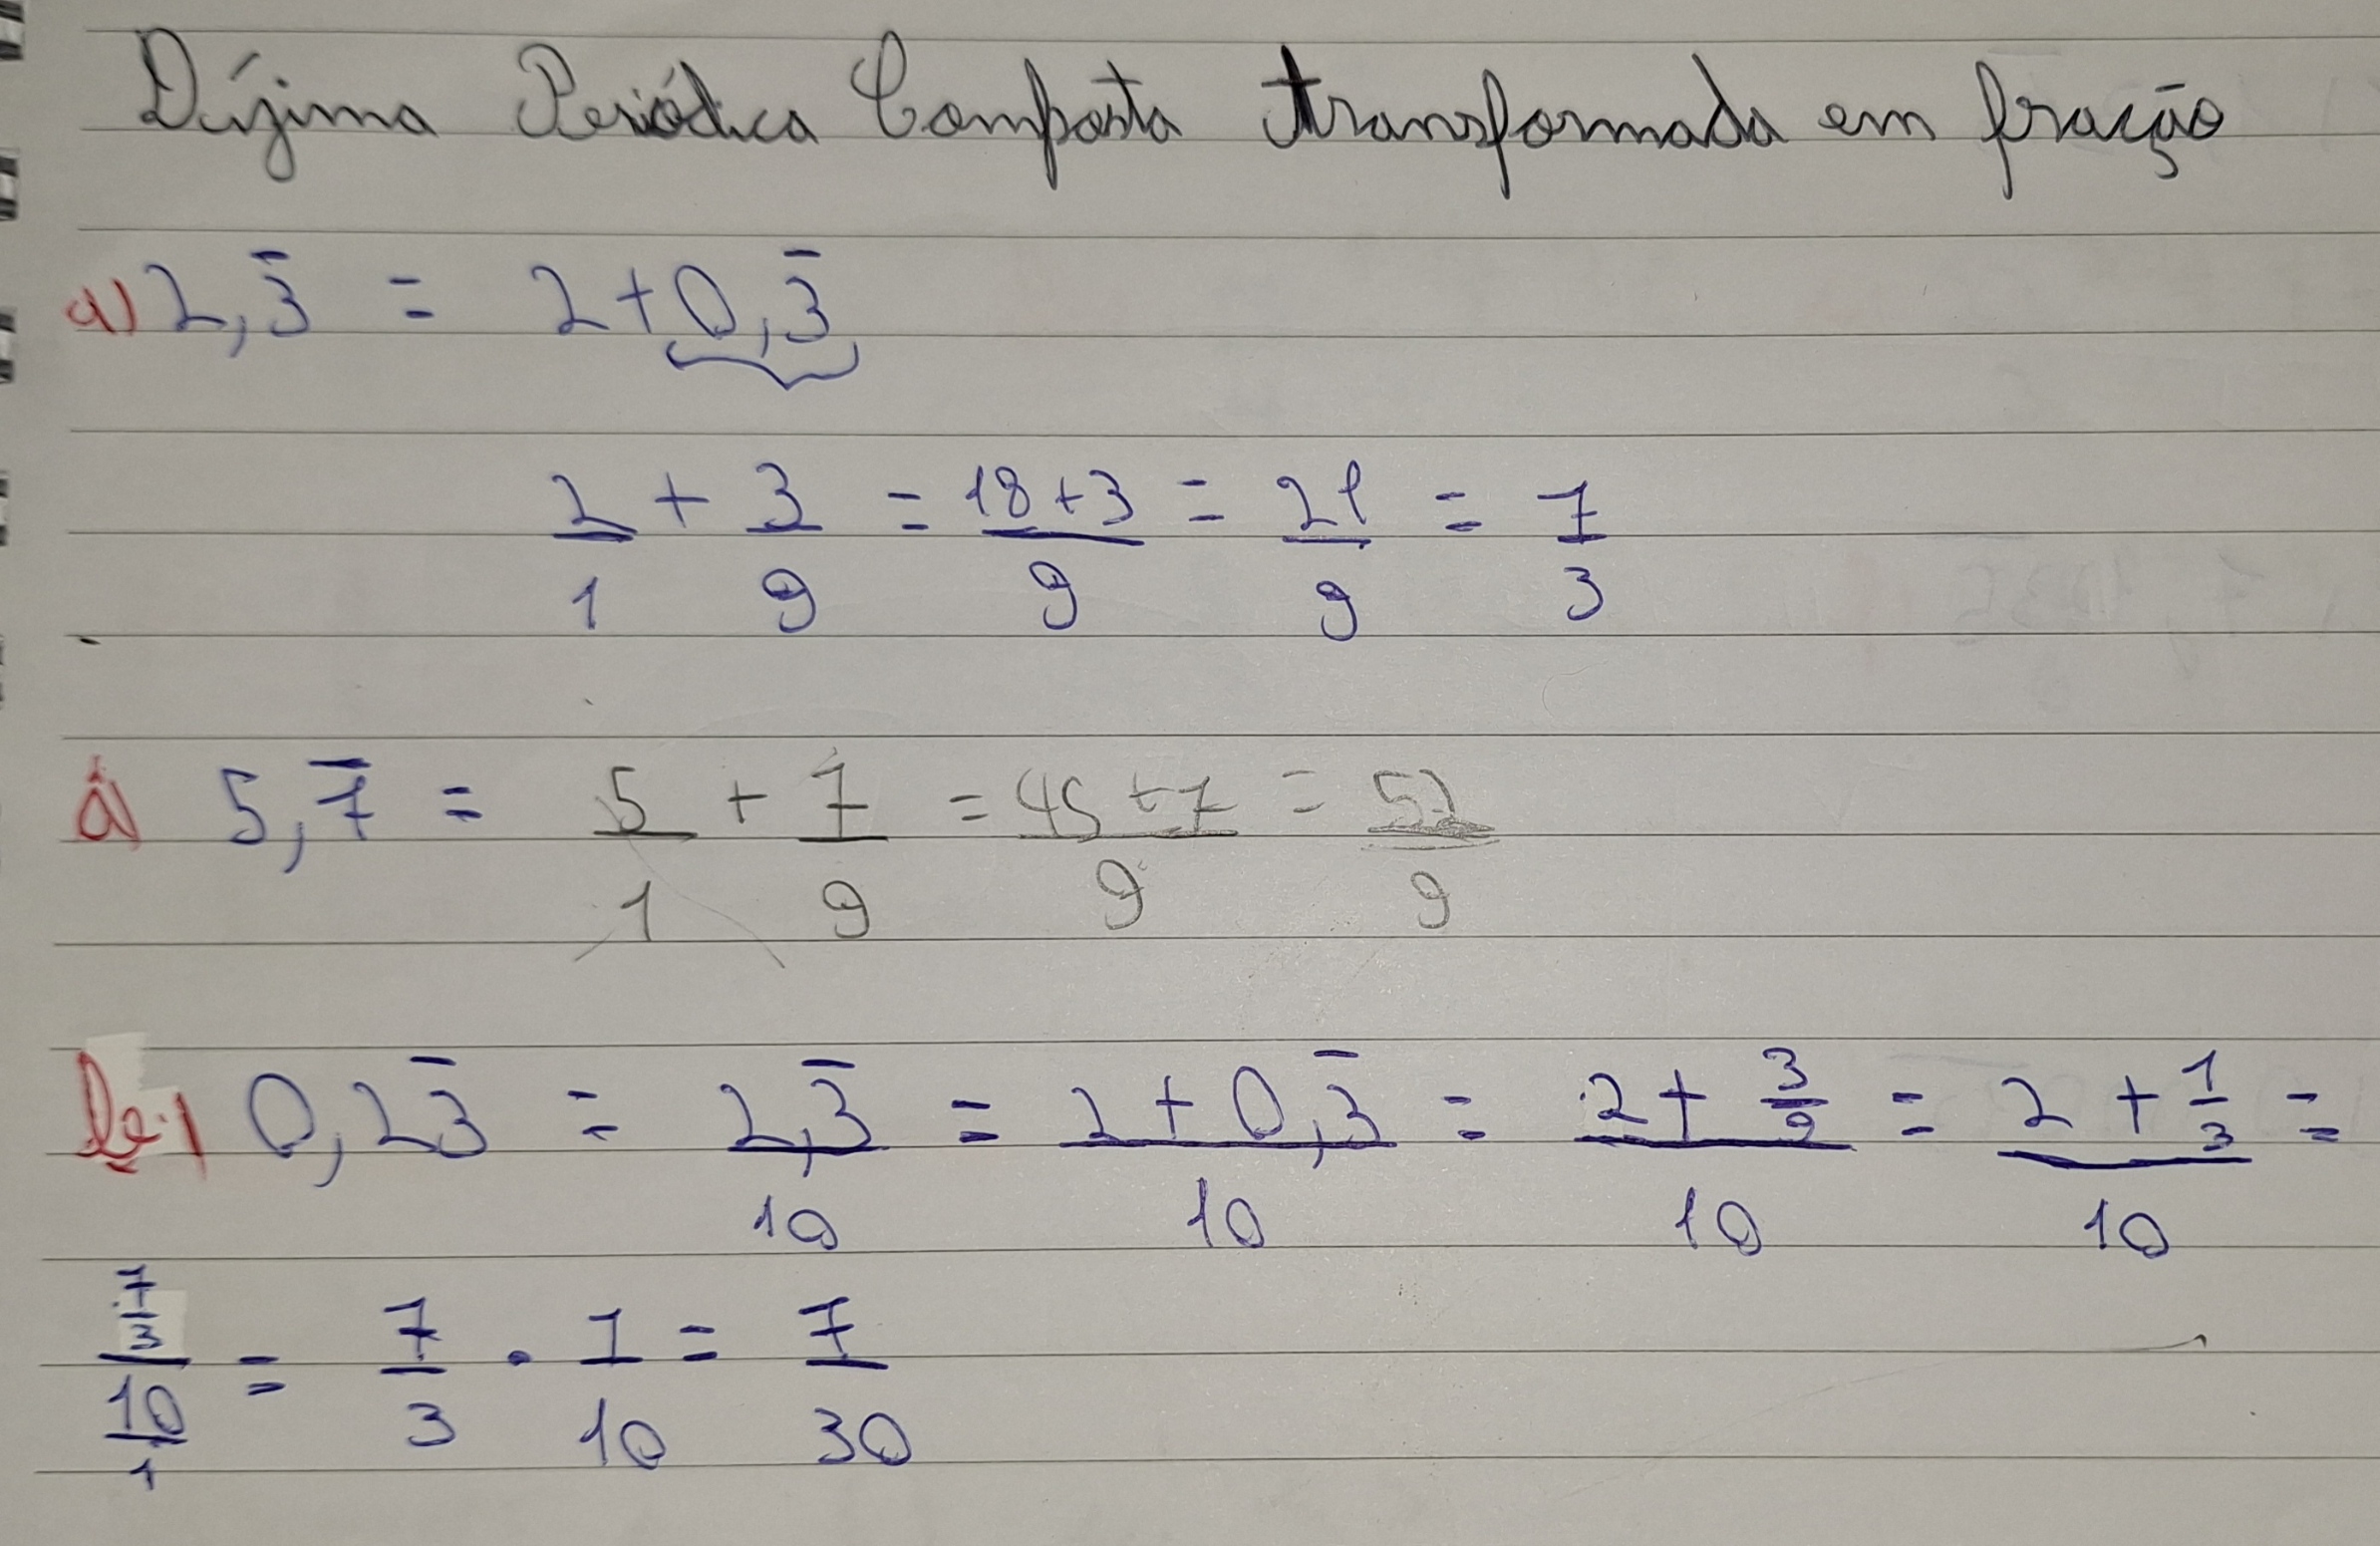 Dízima Periódica Composta transformada em fração
a) 2,3̄ = 2 + 0,3̄
2/1 + 3/9 = 18+3/9 = 21/9 = 7/3
a) 5,7̄ = 5/1 + 7/9 = 45+7/9 = 52/9
b) 0,23̄ = 2,3̄/10 = 2 + 0,3̄/10 = 2 + 3/9/10 = 2 + 1/3/10 =
7/3/10/1 = 7/3 . 1/10 = 7/30